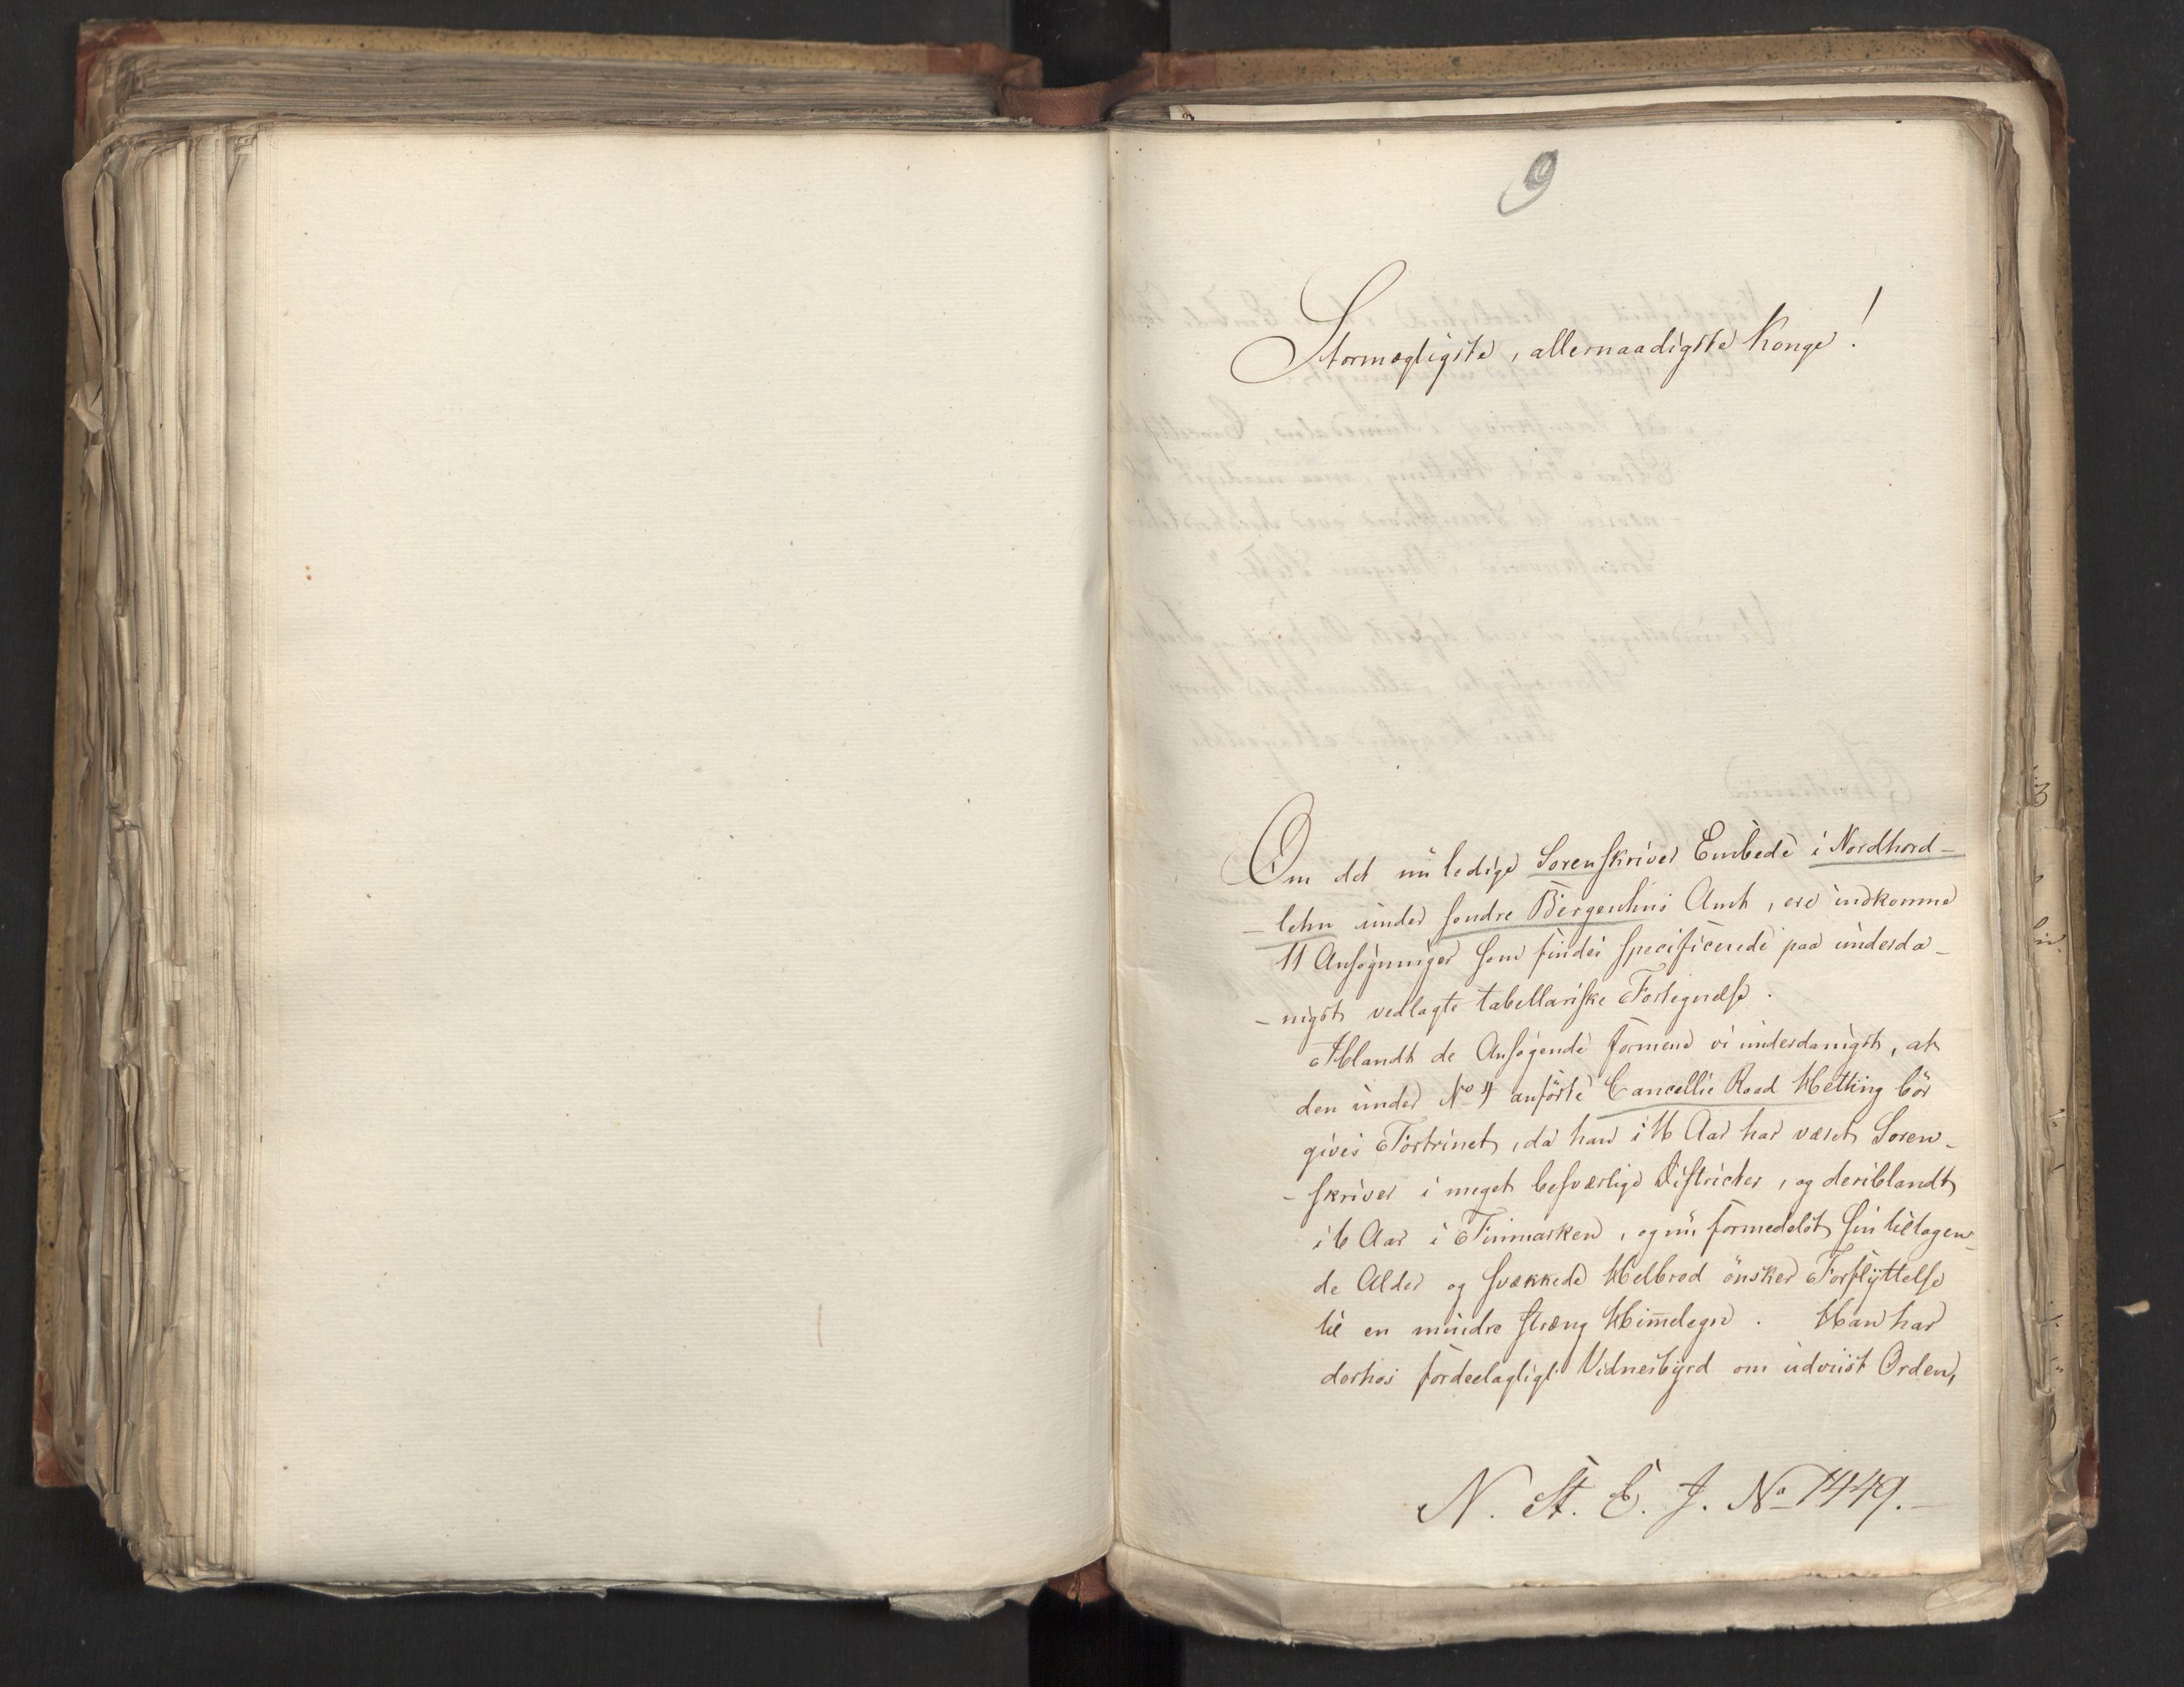 9
Stormægtigste, allernaadigste Konge!
Om det nu ledige Sorenskriver Embede i Nordhord-
-lehn under søndre Bergenhus Amt, ere indkomne
11 Ansøgninger som findes specificerede paa underda-
-nigst vedlagte tabellariske Fortegnelse.
Iblandt de Ansøgende formene vi underdanigst, at
den under No 4 anførte Cancellie Raad Hetting bör
gives Fortrinet, da han i 16 Aar har været Soren-
-skriver i meget besværlige Districter, og deriblandt
i 6 Aar i Finmarken, og nu formedelst sin tiltagen-
de Alder og svækkede Helbred önsker Forflyttelse
til en mindre stræng Him̅elegn. Han har
derhos fordeelagtigt Vidnesbyrd om udviist Orden,
N. St. E. J. No 1449.-